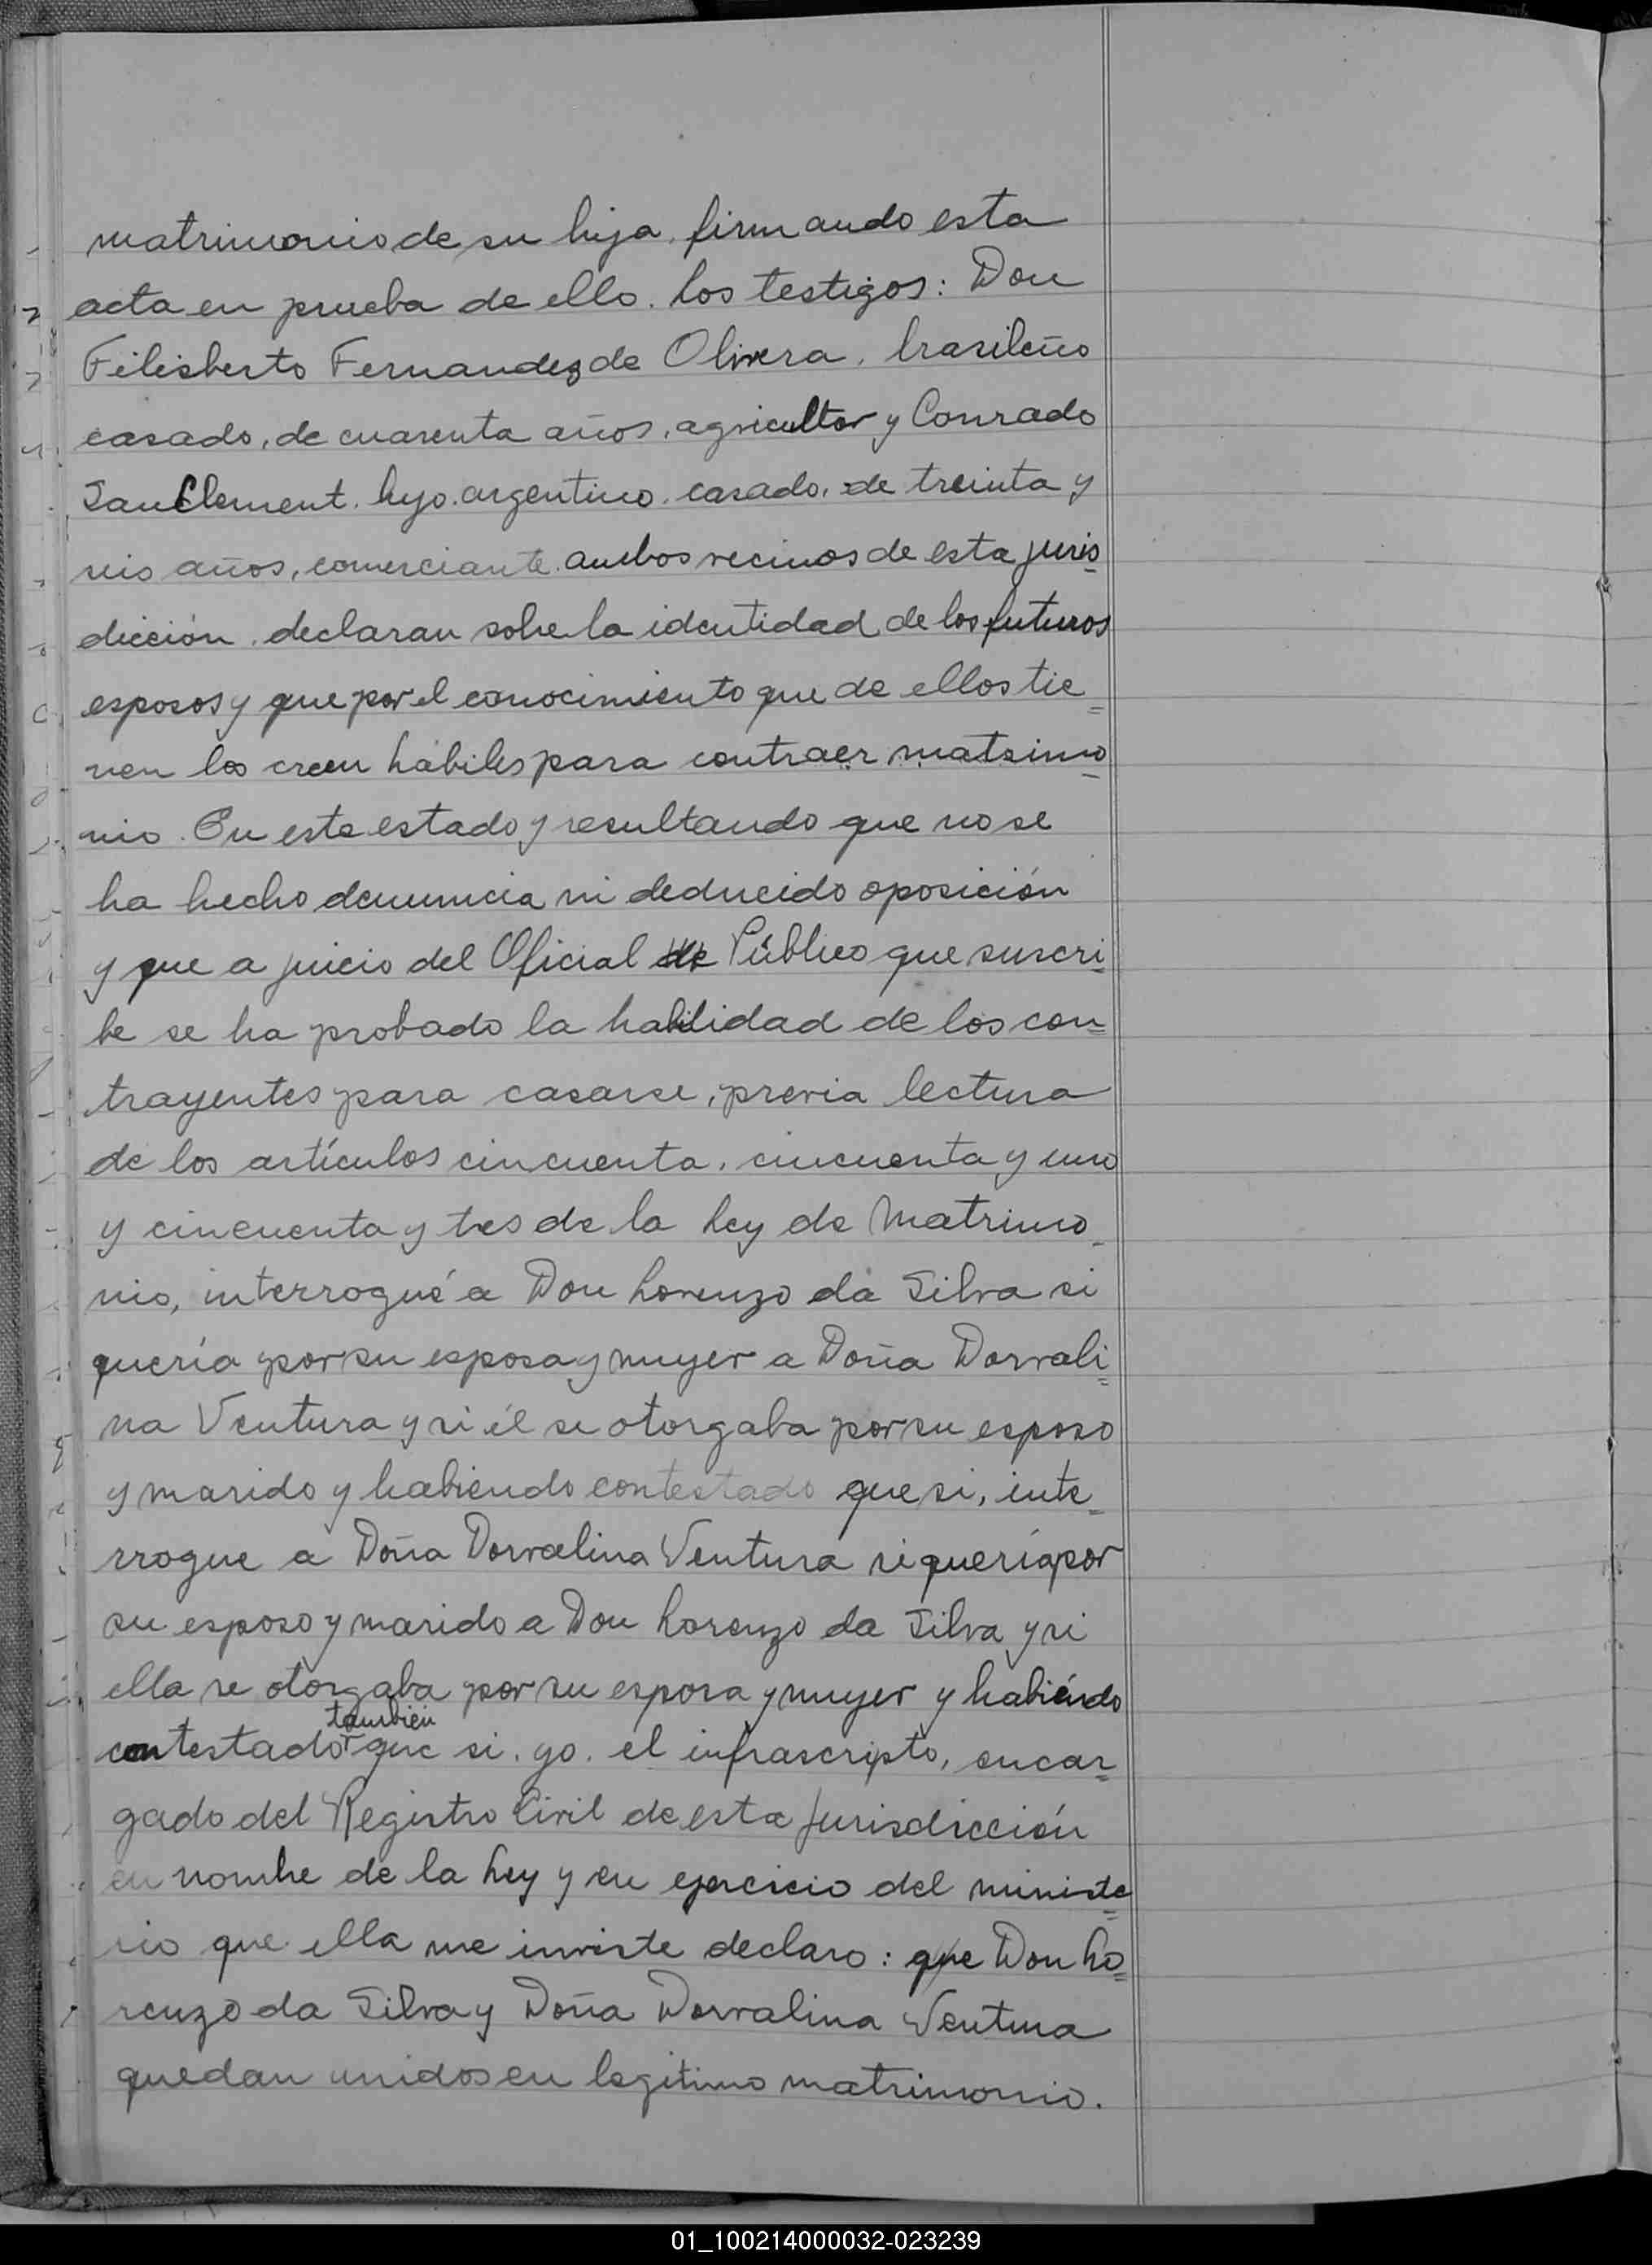 matrimonio de su hija, firmando esta
acta en prueba de ello. Los testigos: Don
Filisberto Fernandez de Olivera, brasileño
casado, de cuarenta años, agricultor y Conrado
SanClement. hyo. argentino. casado. de treinta y
seis años, comerciante. ambos vecinos de esta juris
dicción. declaran sobre la identidad de los futuros
esposos y que por el conocimiento que de ellos tie=
nen los creen hábiles para contraer matrimo=
nio. En este estado y resultando que no se
ha hecho denuncia ni deducido oposición
y que a juicio del Oficial de Público que suscri=
be se ha probado la habilidad de los con=
trayentes para casarse, previa lectura
de los artículos cincuenta, cincuenta y uno
y cincuenta y tres de la Ley de Matrimo-
nio, interrogué a Don Lorenzo da Silva si
quería por su esposa y mujer a Doña Dorvali=
na Ventura y si él se otorgaba por su esposo
y marido y habiendo contestado que si, inte-
rrogue a Doña Dorvalina Ventura si quería por
su esposo y marido a Don Lorenzo da Silva y si
ella se otorgaba por su esposa y mujer y habiéndo
también
contestado que si. yo. el infrascripto, encar=
gado del Registro Civil de esta Jurisdicción
en nombre de la Ley y en ejercicio del ministe=
rio que ella me inviste declaro: que Don Lo=
renzo da Silva y Doña Dorvalina Ventura
quedan unidos en legitimo matrimonio.
01_100214000032-023239